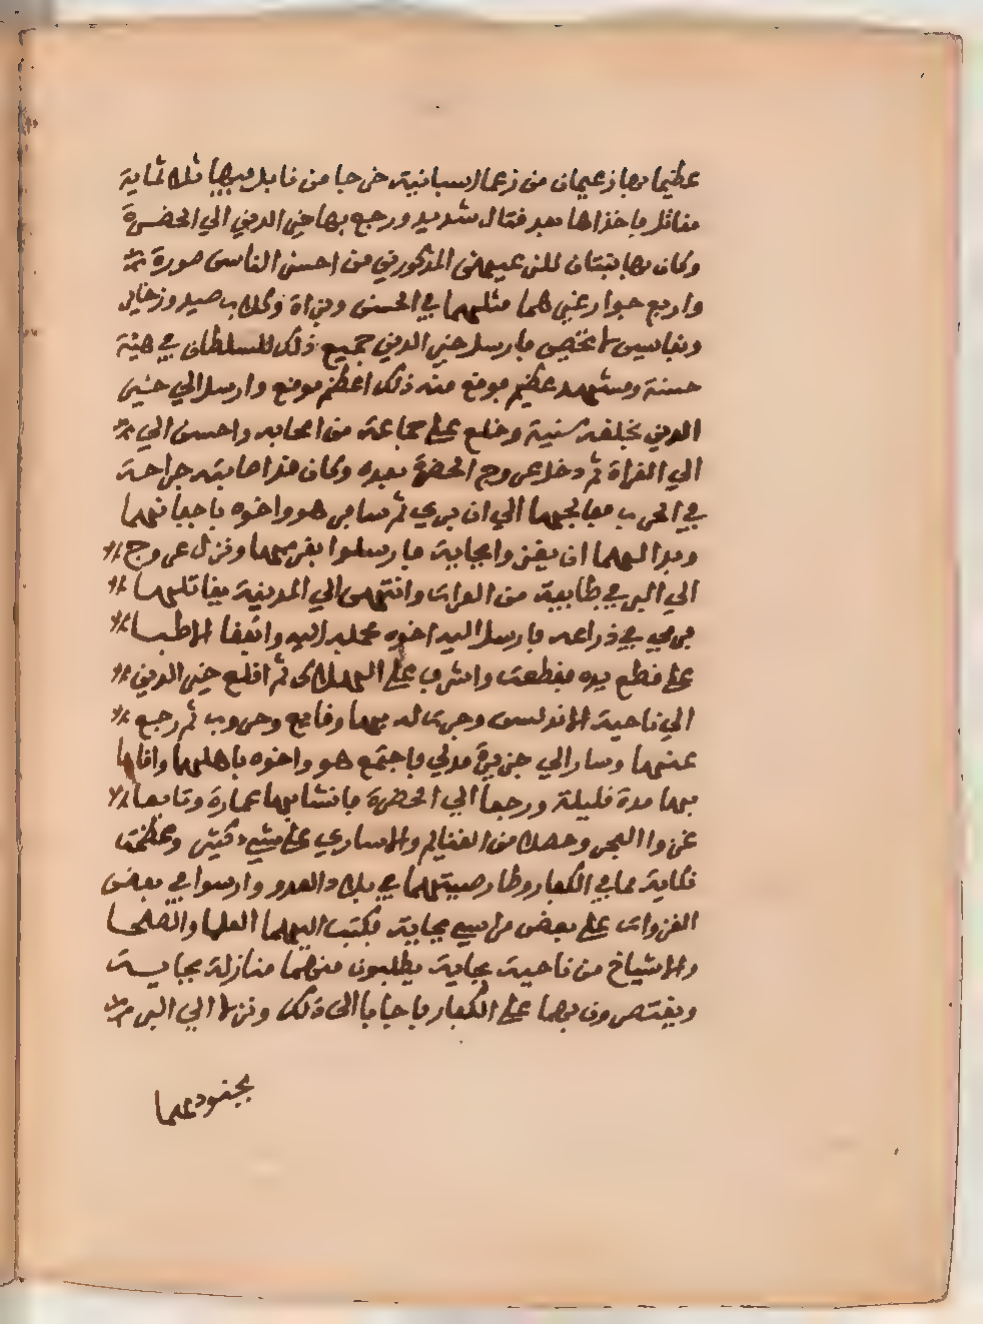 عظيما بها زعيمان من زعما اسبانية خرجا من نابل فيها ثلاثماية
مقاتل فاخذاها بعد قتال شديد ورجع بها خير الدين الي الحضرة
وكان بها بنتان للزعيمين المذكورين من احسن الناس صورة
واربع جوار غيرهما مثلهما في الحسن وبزاة وكلاب صيد وزخاير
ونفايس لا تحصي فارسل خير الدين جميع ذلك للسلطان في هيئة
حسنة ومشهد عظيم فوقع منه ذلك اعظم موقع وارسل الي خير
الدين بخلعة سنية وخلع علي جماعة من اصحابه واحسن الي
الي الغزاة ثم دخل عروج الحضرة بعده وكان قد اصابته جراحة
في الحرب فعالجها الي ان بري ثم سافر هو واخوه باجفانهما
وبدا لهما ان يغزوا بجاية فارسلوا بقربها ونزل عروج
الي البر في طايفة من الغزاة وانتهى الي المدينة يقاتلها
فرمي في ذراعه فارسل اليه اخوه فحمله اليه واتفقا الاطبا
علي قطع يده فقطعت واشرف علي الهلاك ثم اقلع خير الدين
الي ناحية الاندلس وجرت له بها وقايع وحروب ثم رجع
عنها وسار الي جزيرة مدلي فاجتمع هو واخوه باهلهما واقاما
بها مدة قليلة ورجعا الي الحضرة فانشا بها عمارة وتابعا
غزو البحر وحصلا من الغنايم والاساري علي شيء كثير وعظمت
نكايتهما في الكفار وطار صيتهما في بلاد العدو وارسوا في بعض
الغزوات علي بعض مراسي بجاية فكتب اليهما العلما والصلحا
والاشياخ من ناحية بجاية يطلبون منهما منازلة بجاية
ويعتصرون بهما علي الكفار فاجابا الى ذلك ونزلا الي البر
بجنودهما